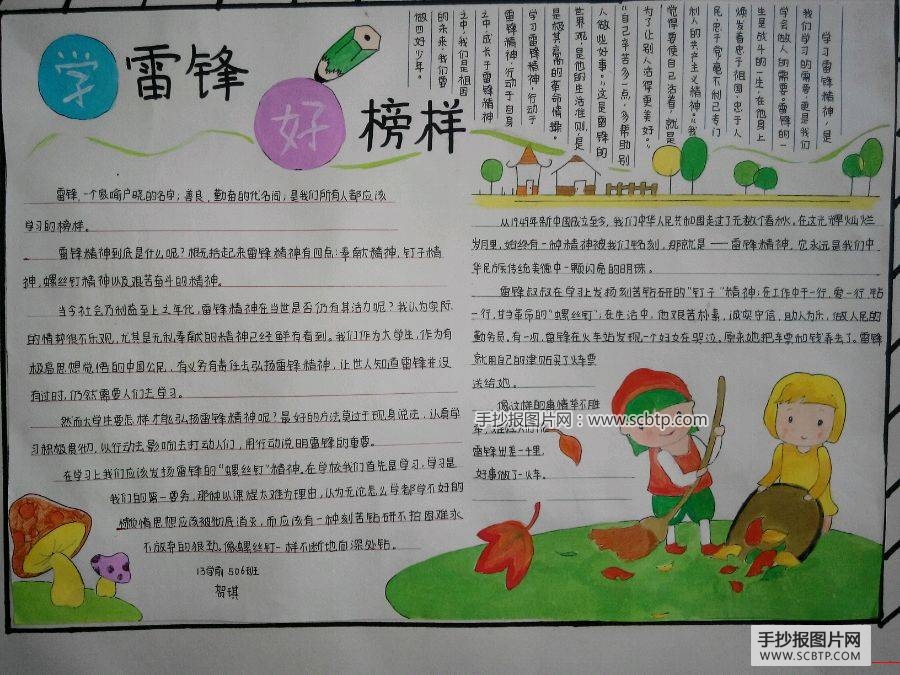 学雷锋
好榜样
学习雷锋精神，是
我们学习的需要，更是我们
学会做人的需要。雷锋的一
生是战斗的一生，在他身上
焕发着忠于祖国，忠于人
民，忠于党，毫不利己，专门
利人的共产主义精神。“我
觉得要使自己活着，就是
为了让别人活得更美好。”
“自己辛苦多一点，多帮助别
人做些好事。”这是雷锋的
世界观，是他的生活准则，是
是极其高高的革命情操。
学习雷锋精神，行动于
雷锋精神，行动于自身
之中，成长于雷锋精神
之中，我们是祖国
的未来，我们要
做四好少年。
雷锋，一个家喻户晓的名字；善良、勤奋的代名词；是我们所有人都应该
学习的榜样。
雷锋精神到底是什么呢？概括起来雷锋精神有四点：奉献精神，钉子精
神，螺丝钉精神以及艰苦奋斗的精神。
的情势很不乐观，尤其是无私奉献的精神已经鲜有看到。我们作为大学生，作为有
极高思想觉悟的中国公民，有义务有责任去弘扬雷锋精神，让世人知道雷锋并没
有过时，仍然需要人们去学习。
然而大学生要怎样才能弘扬雷锋精神呢？最好的方法莫过于现身说法，认真学
习积极贯彻，以行动去影响去打动人们，用行动说明雷锋的重要。
在学习上我们应该发扬雷锋的“螺丝钉”精神。在学校我们首先是学习，学习是
我们的第一要务，那种以课程太难为理由，认为无论怎么学都学不好的
懒惰思想应该被彻底消灭，而应该有一种刻苦钻研不怕困难永
不放弃的狠劲。像螺丝钉一样不断地向深处钻。
13学前506班
贺琪
从1949年新中国成立至今，我们中华人民共和国走过了无数个春秋。在这光辉灿烂
岁月里，始终有一种精神被我们铭刻，那就是——雷锋精神。它永远是我们中
华民族传统美德中一颗闪亮的明珠。
雷锋叔叔在学习上发扬刻苦钻研的“钉子”精神；在工作中干一行，爱一行，钻
一行，甘当革命的“螺丝钉”；在生活中，他艰苦朴素，诚实守信，助人为乐，做人民的
勤务员。有一次，雷锋在火车站发现一个妇女在哭泣，原来她把车票和钱弄丢了。雷锋
就用自己的津贴买了火车票
送给她。
像这样的事情举不胜
雷锋出差一千里，
好事做了一火车。
手抄报图片网：www.scbtp.com
手抄报图片网
WWW.SCBTP.COM